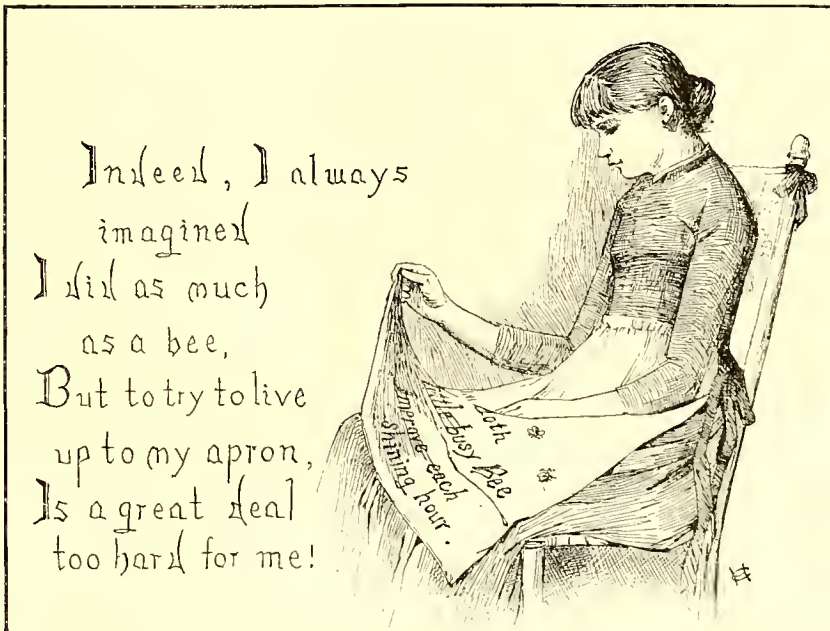 Indeed, I always
imagined
I did as much
as a bee,
But to try to live
up to my apron,
Is a great deal
too hard for me!
"doth
little busy Bee
improve each
shining hour.